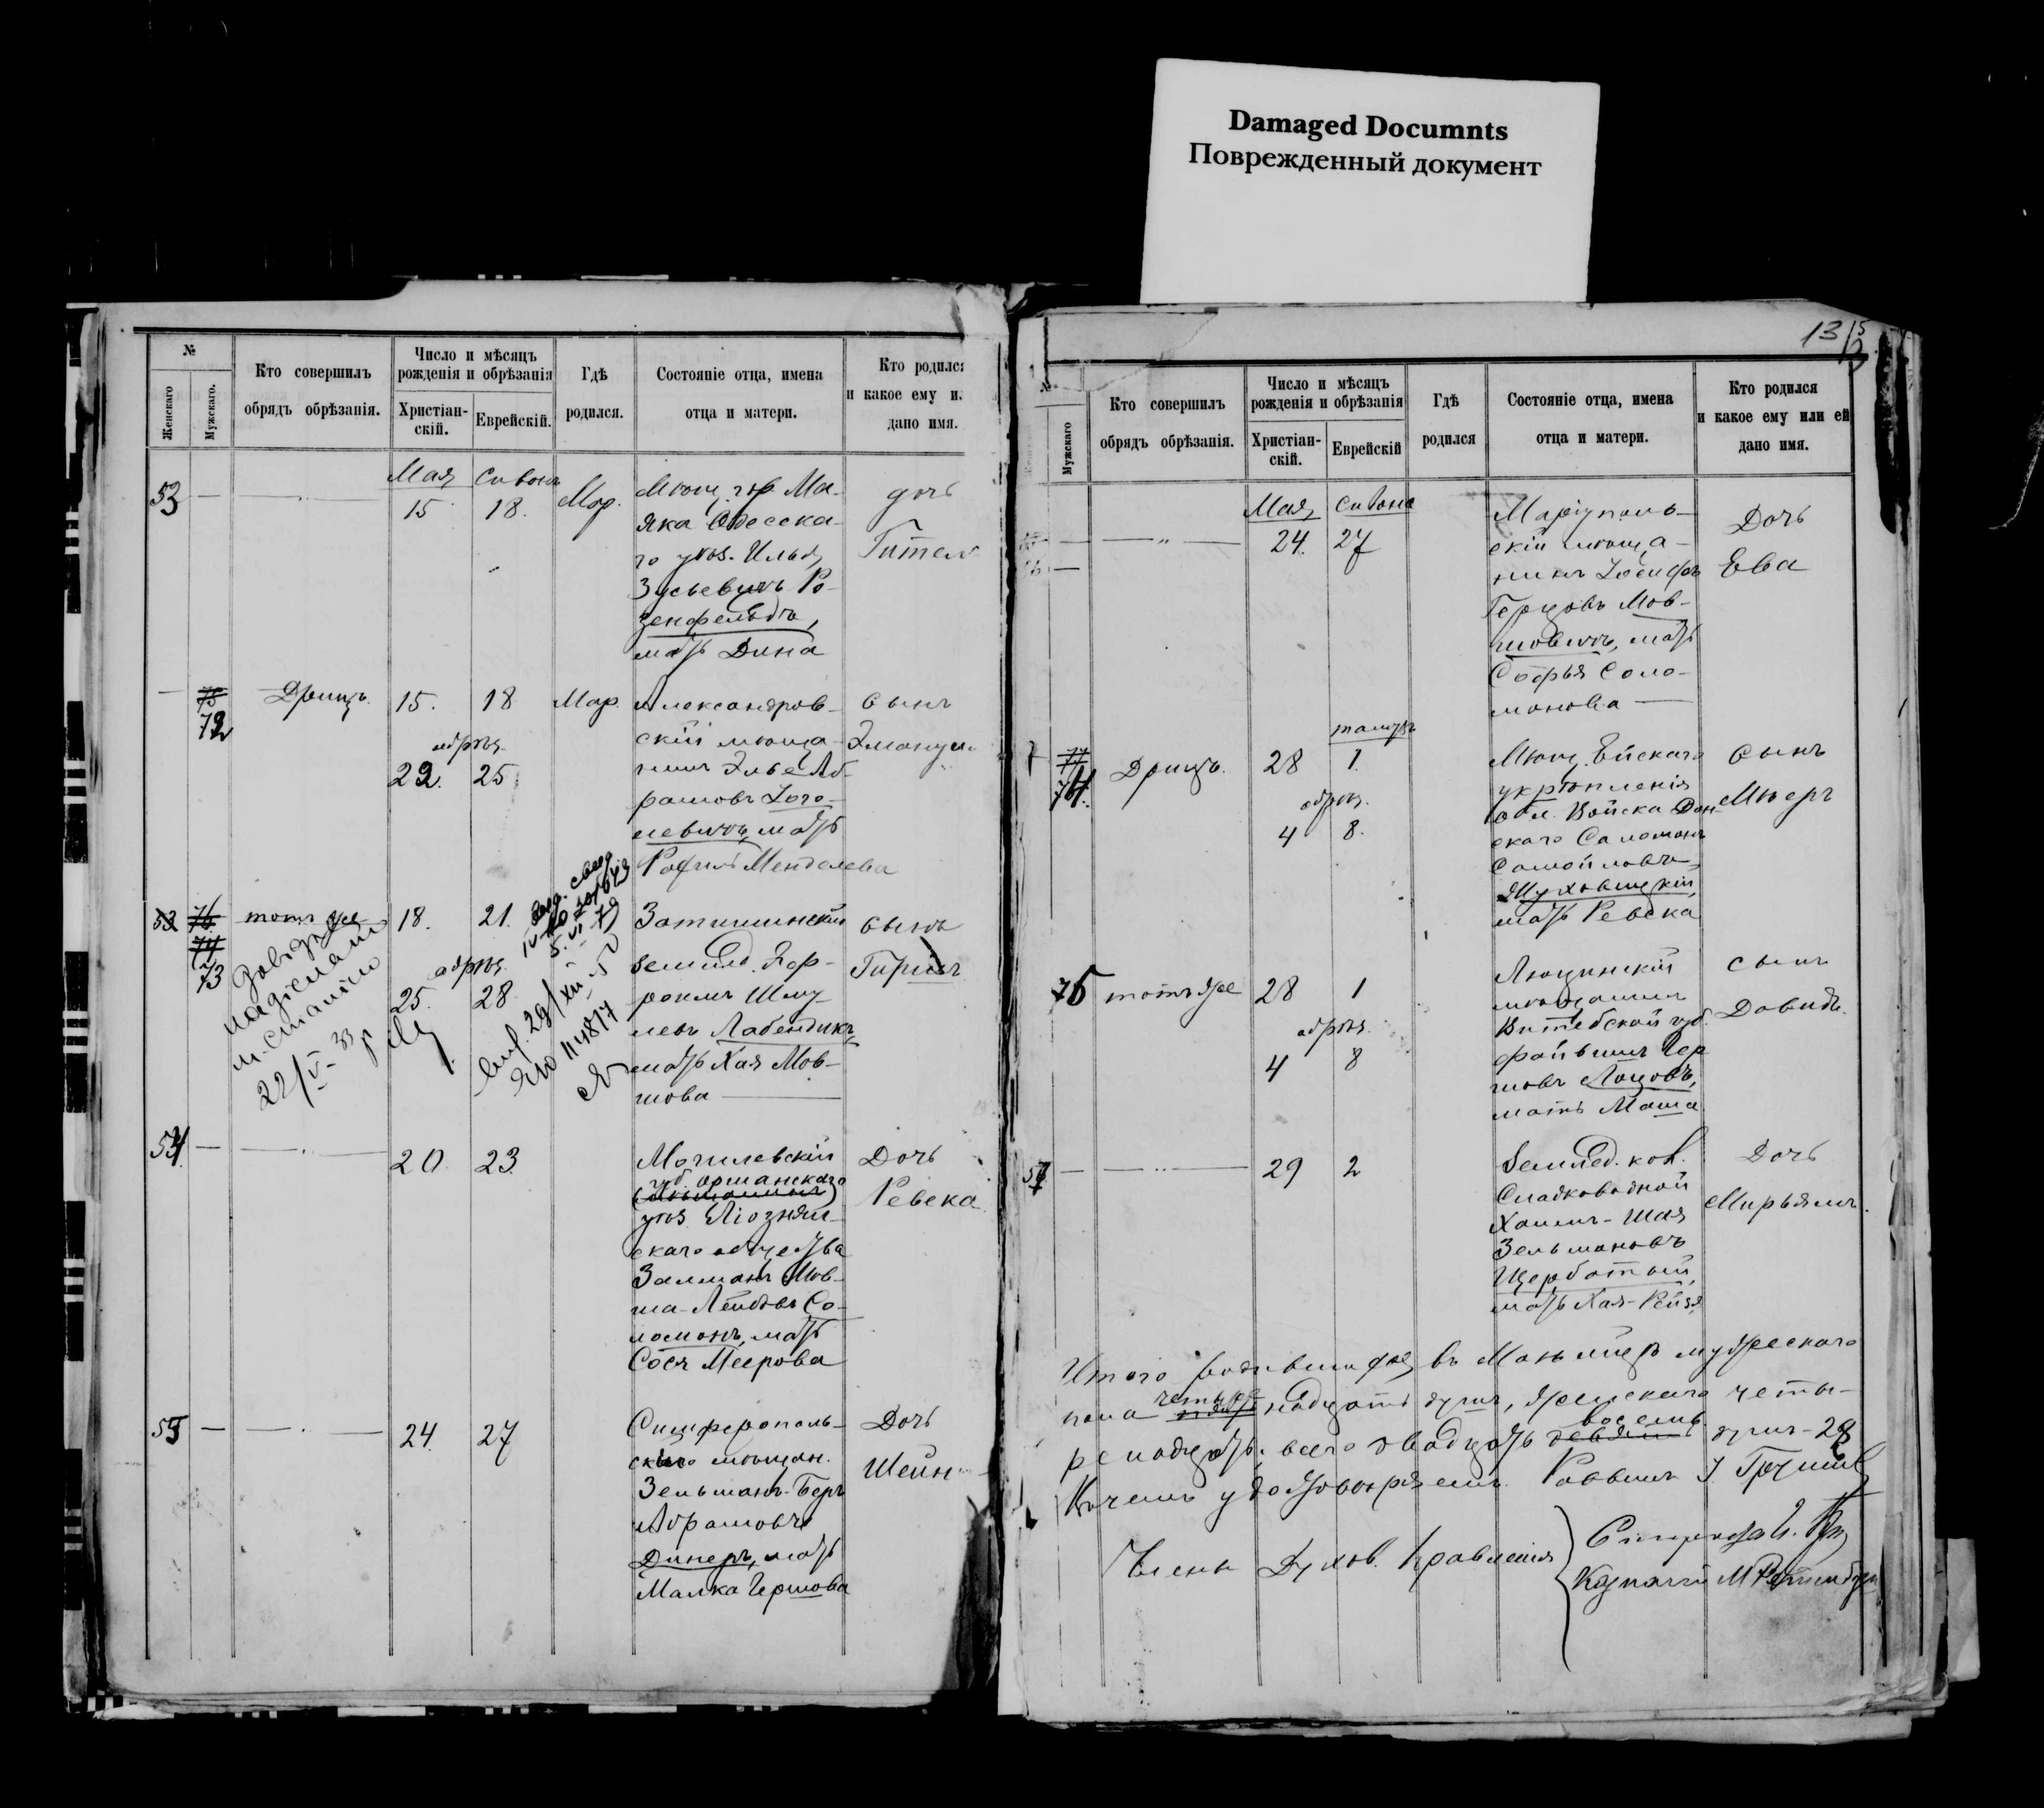 Damaged Documnts
Поврежденный документ
№
Женскаго
Мужскаго.
Кто совершилъ
обрядъ обрѣзанія.
Число и мѣсяцъ
рожденія и обрѣзанія
Христіан-
скій.
Еврейскій.
Гдѣ
родился.
Состояніе отца, имена
отца и матери.
Кто родилс
и какое ему и
дано имя.
Мая
15
18.
53
Мѣщ. гор. Ма-
яка Одесска-
го уѣз. Илья
Зусьевичъ Ро-
зенфельдъ,
мать Дина
дочь
Гител
72
15.
18
Мар.
обрѣз.
22.
25
Александров-
скій мѣща-
нинъ Элье Аб-
рамовъ
мать
Менделева
сынъ
Эмануи
73
тотъ же
18.
21.
обрѣз.
25.
28
22/V-33 р
5.VI-79
Затишинскій
землед.
Лабендикъ,
мать Хая Мов-
шова
сынъ
Гиршъ
54
20
23
Могилевскій
губ. Оршанскаго
уѣз. Ліознян-
скаго общества
Залманъ Мов-
ша-Лейбовъ Со-
ломонъ, мать
Сося Меерова
Дочь
Ревека
55
24
27
Симферополь-
мѣщан.
Зельманъ-Беръ
Абрамовъ
Динеръ, мать
Малка Гершова
Дочь
Шейн
13
Мужскаго
Кто совершилъ
обрядъ обрѣзанія.
Число и мѣсяцъ
рожденія и обрѣзанія
Христіан-
скій.
Еврейскій
Гдѣ
родился
Состояніе отца, имена
отца и матери.
Кто родился
и какое ему или ей
дано имя.
Мая
Сивона
24.
27
Маріуполь-
скій мѣща-
нинъ Іосифъ
Герцовъ Мов-
шовичъ, мать
Софья Соло-
монова
Дочь
Ева
74.
28
1.
обрѣз.
4
8.
Мѣщ. Ейскаго
укрѣпленія
обл. Войска Дон-
скаго Саломонъ
Самойловъ
мать Ревека
сынъ
Мееръ
75
тотъ же
28
1
обрѣз.
4
8
Люцинскій
мѣщанинъ
Витебской губ.
Файвишъ Гер
шовъ Лоцовъ,
мать Маша
сынъ
Давидъ.
29
2
Землед. кол.
Сладководной
Хаимъ-Шая
Зельмановъ
Щербатый,
мать Хая-Рейзя
Дочь
Мирьямъ.
Итого родившихся въ Маѣ мѣсяцѣ мужескаго
пола четыр надцать душъ, женскаго четы-
ренадцать, всего двадцать восемь душъ - 28
въ чемъ удостовѣряемъ. Раввинъ
Члены Духов. Правленія
Староста
Казначей